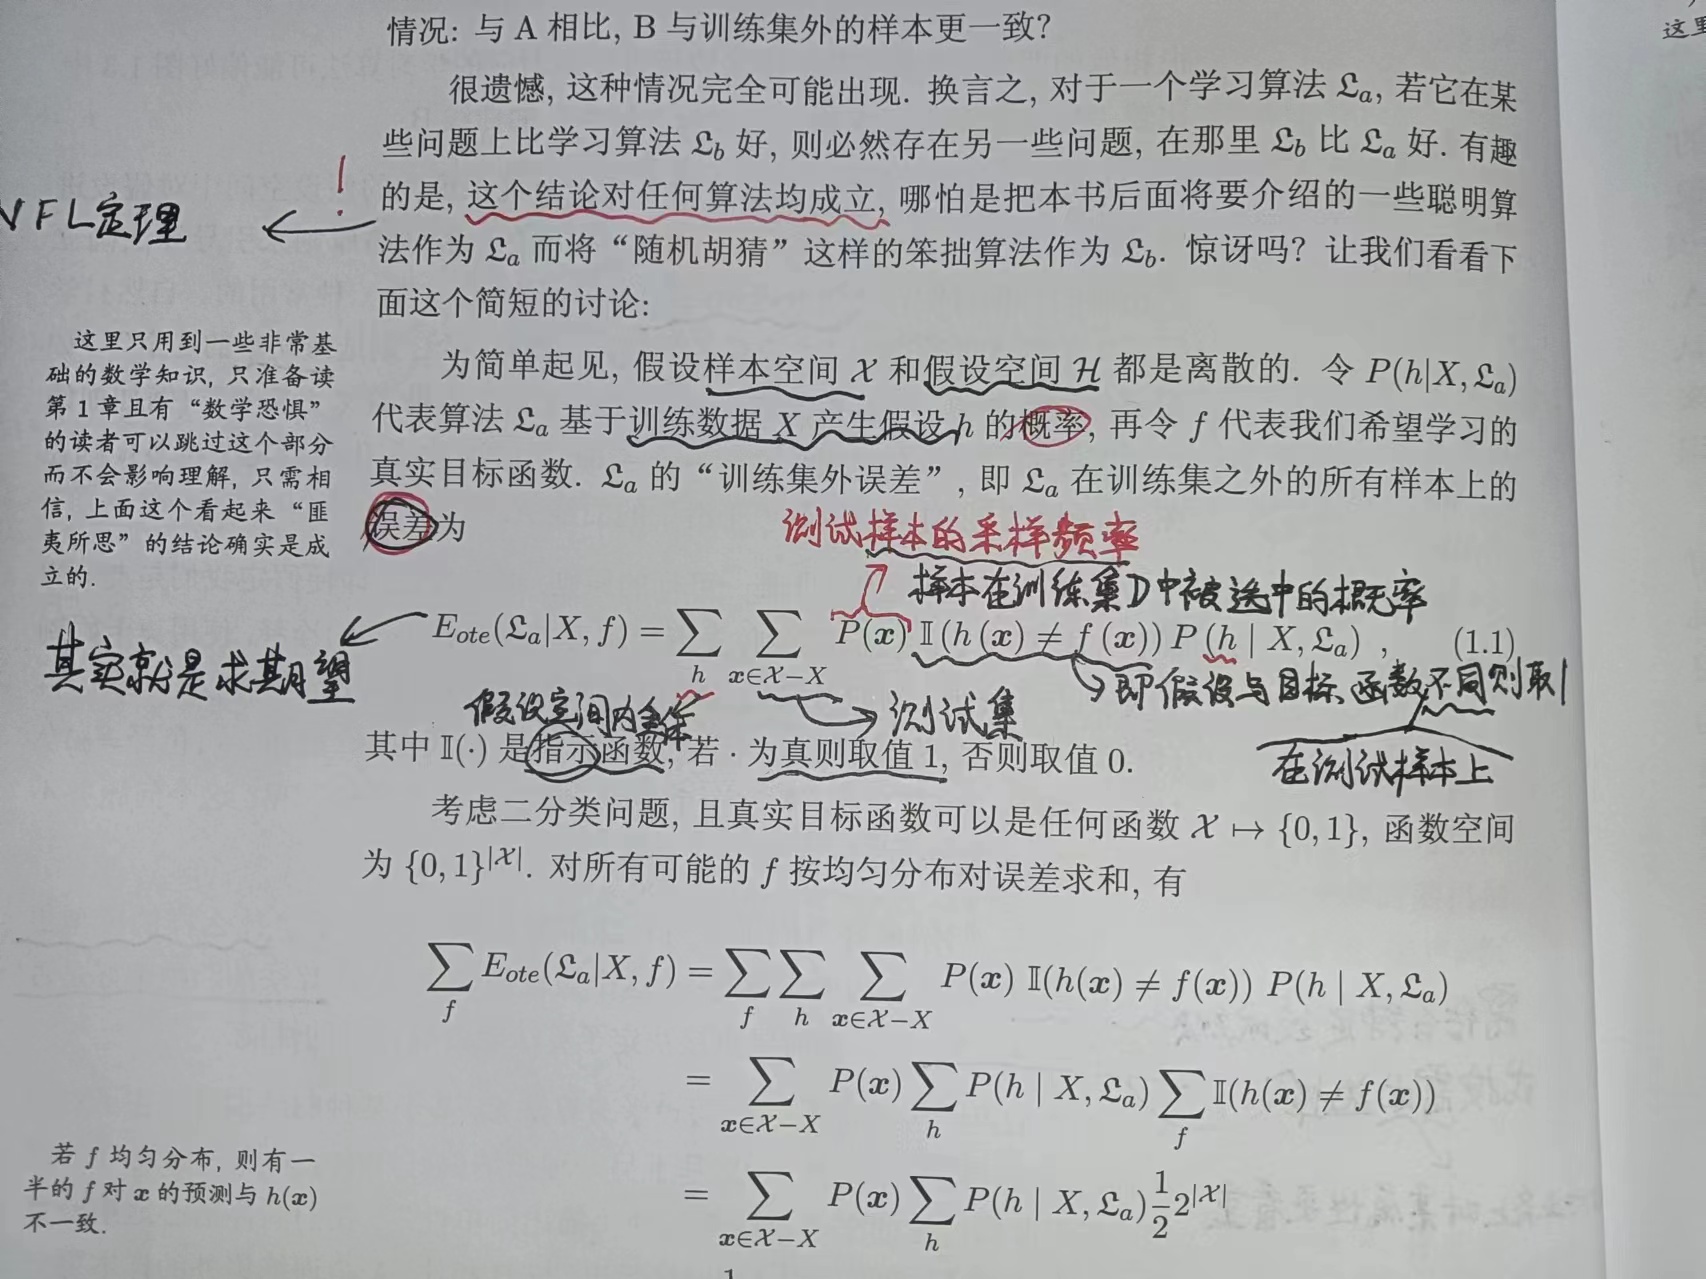 情况: 与 A 相比, B 与训练集外的样本更一致?
这里
很遗憾, 这种情况完全可能出现. 换言之, 对于一个学习算法 𝔏ₐ, 若它在某
些问题上比学习算法 𝔏_b 好, 则必然存在另一些问题, 在那里 𝔏_b 比 𝔏ₐ 好. 有趣
的是, 这个结论对任何算法均成立, 哪怕是把本书后面将要介绍的一些聪明算
!
NFL定理
法作为 𝔏ₐ 而将“随机胡猜”这样的笨拙算法作为 𝔏_b. 惊讶吗? 让我们看看下
面这个简短的讨论:
这里只用到一些非常基
础的数学知识, 只准备读
第 1 章且有“数学恐惧”
的读者可以跳过这个部分
而不会影响理解, 只需相
信, 上面这个看起来“匪
夷所思”的结论确实是成
立的.
为简单起见, 假设样本空间 𝒳 和假设空间 ℋ 都是离散的. 令 P(h|X, 𝔏ₐ)
代表算法 𝔏ₐ 基于训练数据 X 产生假设 h 的概率, 再令 f 代表我们希望学习的
真实目标函数. 𝔏ₐ 的“训练集外误差”, 即 𝔏ₐ 在训练集之外的所有样本上的
误差为
测试样本的采样频率
样本在训练集D中被选中的概率
E_ote(𝔏ₐ|X, f) = ∑_h ∑_{x∈𝒳−X} P(x) 𝕀(h(x) ≠ f(x)) P(h | X, 𝔏ₐ) , (1.1)
其实就是求期望
假设空间内全体
测试集
即假设与目标函数不同则取1
在测试样本上
其中 𝕀(·) 是指示函数, 若 · 为真则取值 1, 否则取值 0.
考虑二分类问题, 且真实目标函数可以是任何函数 𝒳 ↦ {0, 1}, 函数空间
为 {0, 1}^{|𝒳|}. 对所有可能的 f 按均匀分布对误差求和, 有
∑_f E_ote(𝔏ₐ|X, f) = ∑_f ∑_h ∑_{x∈𝒳−X} P(x) 𝕀(h(x) ≠ f(x)) P(h | X, 𝔏ₐ)
= ∑_{x∈𝒳−X} P(x) ∑_h P(h | X, 𝔏ₐ) ∑_f 𝕀(h(x) ≠ f(x))
若 f 均匀分布, 则有一
半的 f 对 x 的预测与 h(x)
不一致.
= ∑_{x∈𝒳−X} P(x) ∑_h P(h | X, 𝔏ₐ) 1/2 2^{|𝒳|}